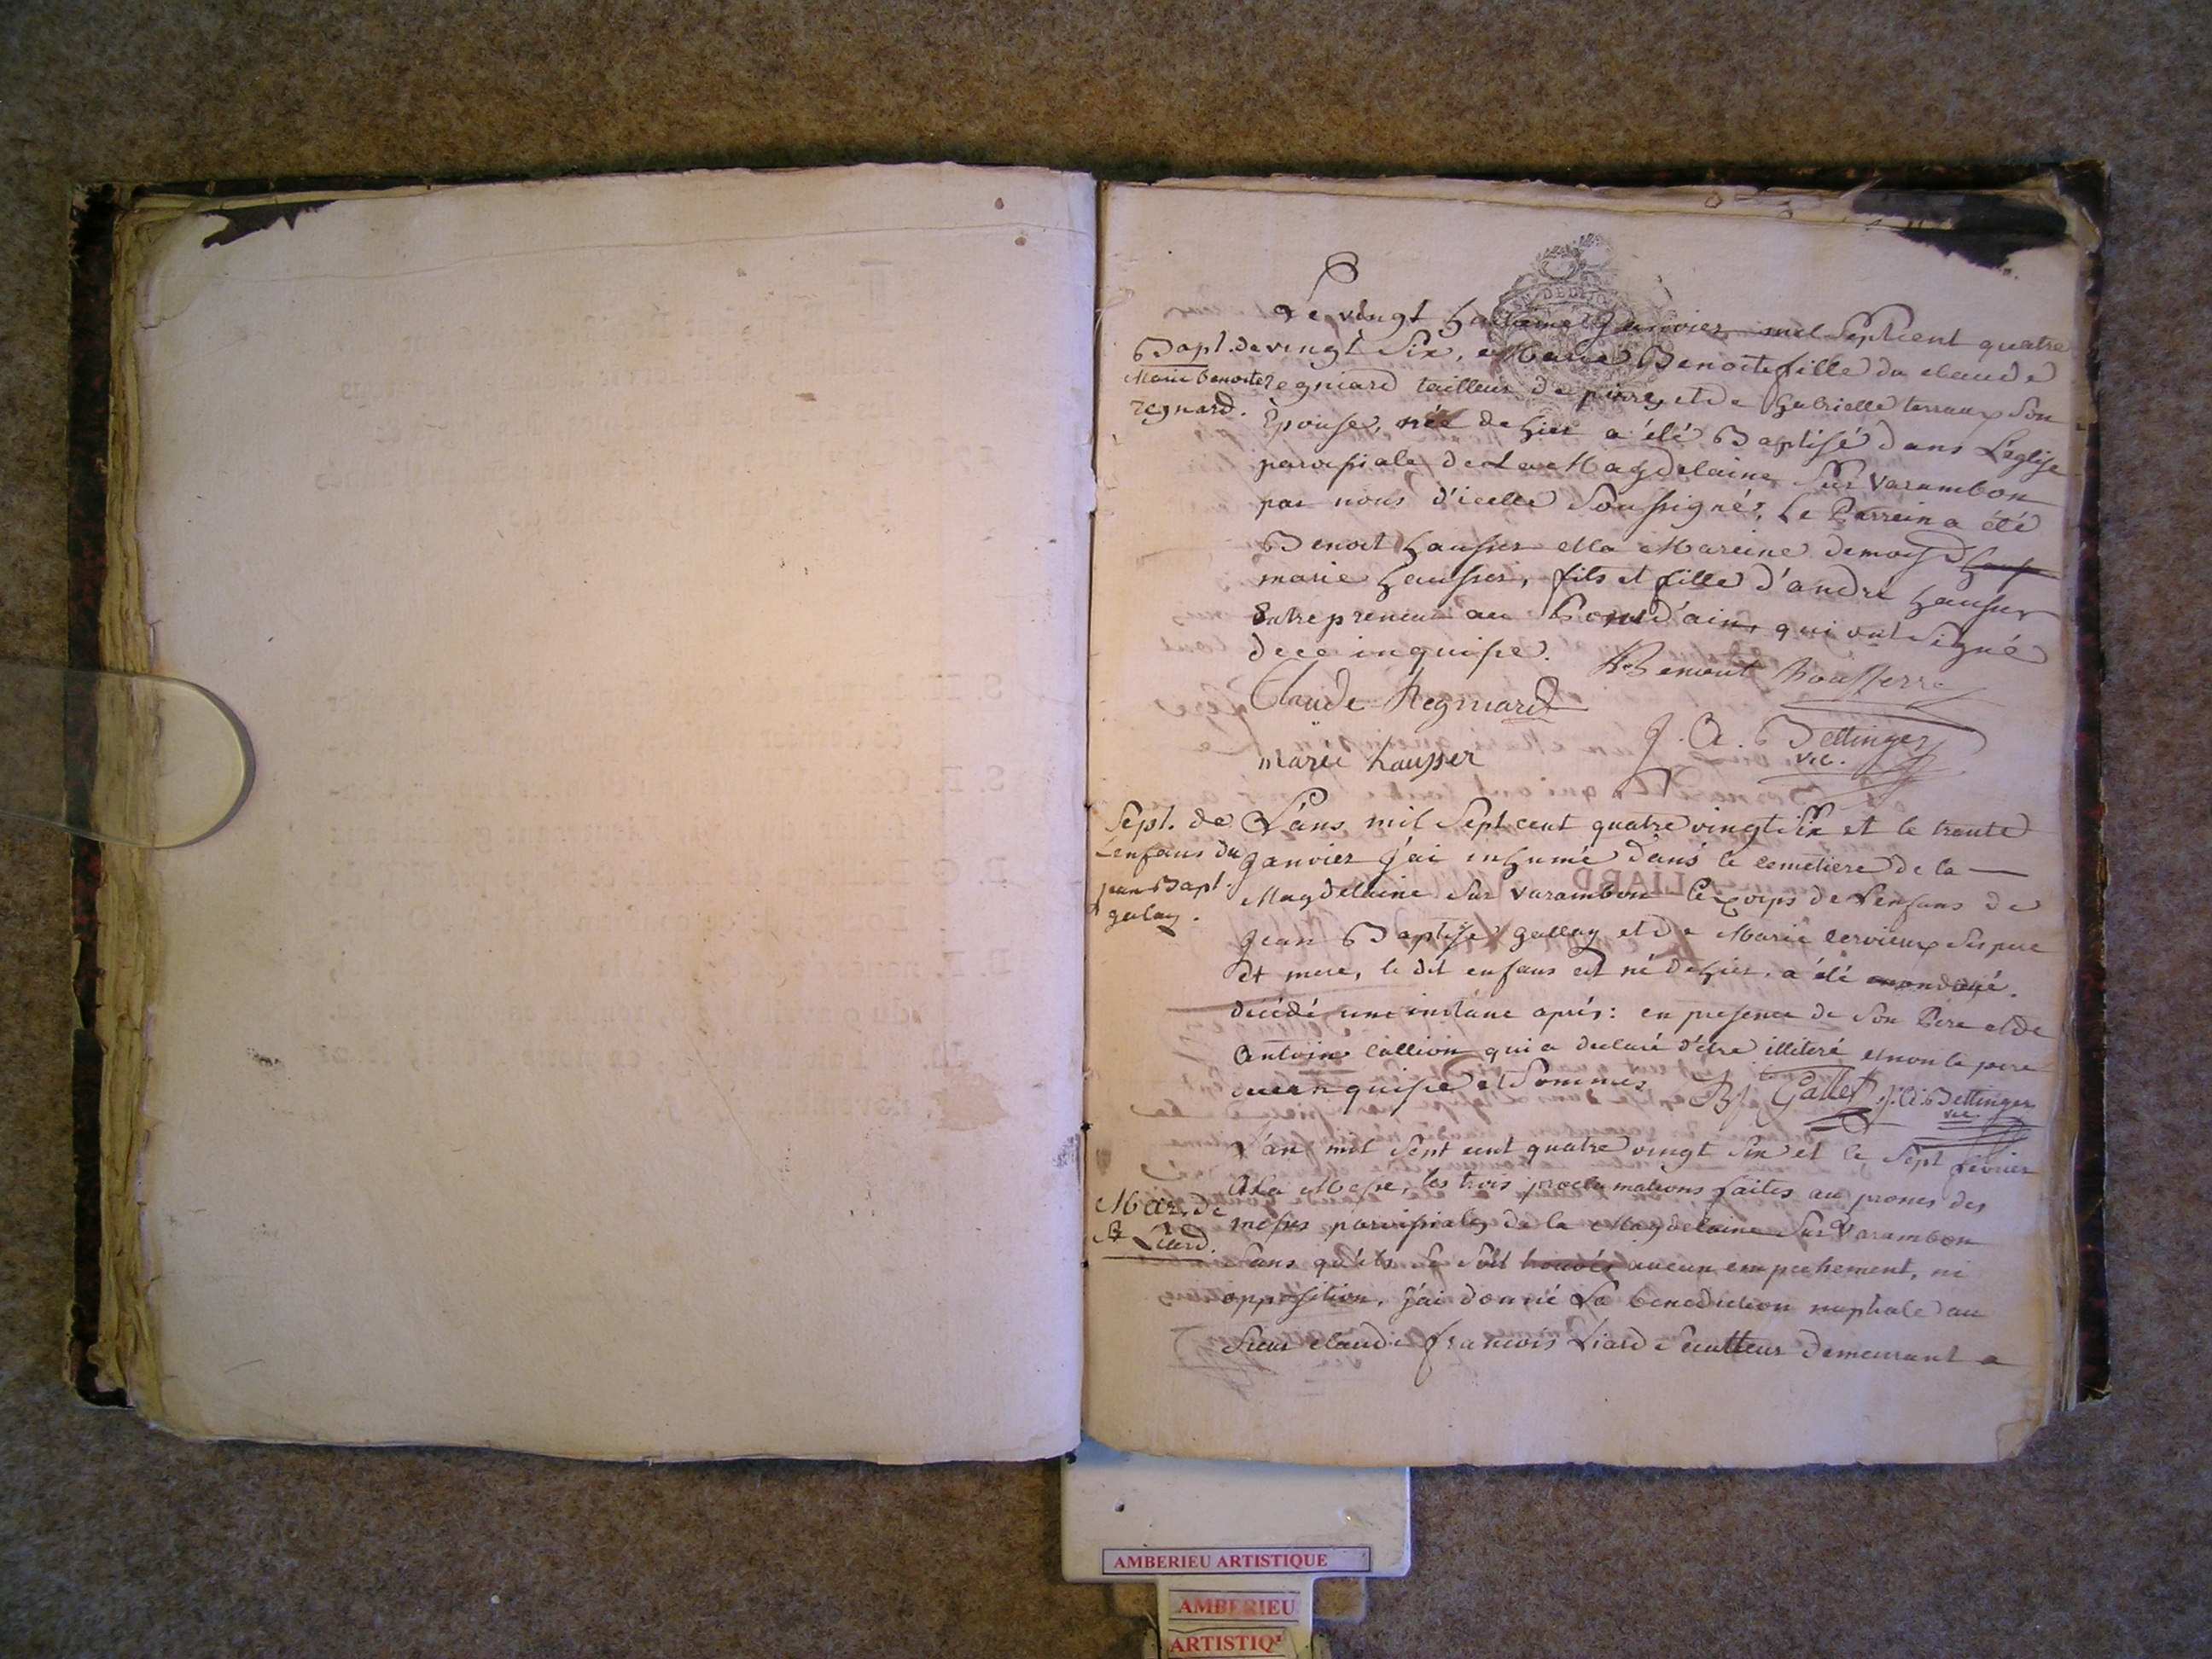 Le vingt huitieme Janvier mil Sept cent quatre
Bapt. de
Marie Benoite
regnard.
vingt Six, Marie Benoite fille du claude
regniard tailleur de pierre, et de Gabrielle terraux Son
Epouse, née de hier a été Baptisé dans L'église
paroissiale de La Magdelaine Sur Varambon
par nous d'icelle Soussigné, Le Parrein a été
Benoit hausser et la Mareine demoise
marie hausser, fils et fille d'andré hausser
Entrepreneur au Pont d'ain, qui ont Signé
de ce inquise.
Claude Regniard
marie hausser
J. A. Bettinger
vic.
Sept. de
L'enfans du
jean Bapt.
galay.
L'ans mil Sept cent quatre vingt Six et le trente
Janvier J'ai inhumé dans le cemetiere de la
Magdelaine Sur Varambon le Corps de L'enfans de
Jean Baptise gallay et de Marie cervieux Ses pere
et mere, le dit enfans est né de hier, a été
décédé une instane aprés: en presence de Son Pere et de
Antoine callion qui a declaré d'etre illiteré et non le pere
quise et Sommes
Bt Gallet J. A. Bettinger
vic.
L'an mil Sept cent quatre vingt Six et le Sept fevrier
Mar. de
Liard.
A la Messe, les trois proclamations faites au prones des
messes paroissiales de la Magdelaine Sur Varambon
Sans qu'ils Se Soit trouvés aucun empechement, ni
opposition, J'ai donné La benediction nuptiale au
Sieur claude francois Liard Sculteur demeurant a
AMBERIEU ARTISTIQUE
AMBERIEU
ARTISTIQ